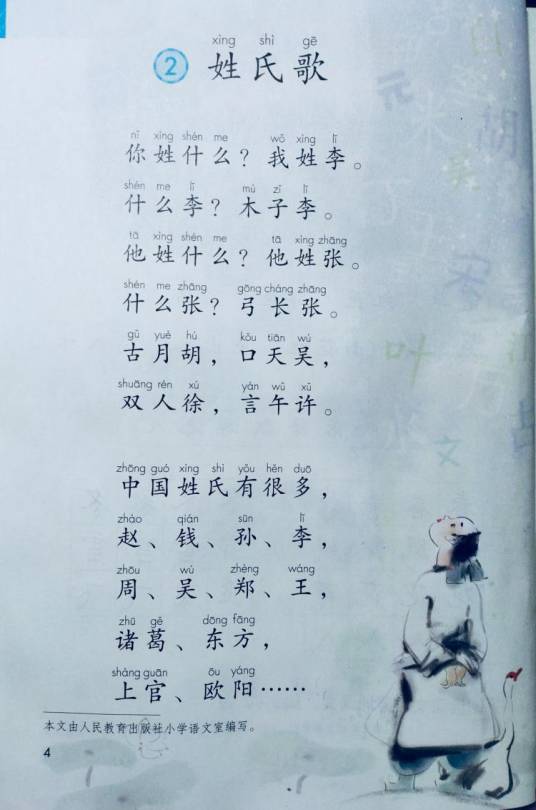 xìng shì gē
② 姓氏歌
nǐ xìng shén me wǒ xìng lǐ
你姓什么？我姓李。
shén me lǐ mù zǐ lǐ
什么李？木子李。
tā xìng shén me tā xìng zhāng
他姓什么？他姓张。
shén me zhāng gōng cháng zhāng
什么张？弓长张。
gǔ yuè hú kǒu tiān wú
古月胡，口天吴，
shuāng rén xú yán wǔ xǔ
双人徐，言午许。
zhōng guó xìng shì yǒu hěn duō
中国姓氏有很多，
zhào qián sūn lǐ
赵、钱、孙、李，
zhōu wú zhèng wáng
周、吴、郑、王，
zhū gě dōng fāng
诸葛、东方，
shàng guān ōu yáng
上官、欧阳……
本文由人民教育出版社小学语文室编写。
4
元
米
胡
吴
宋
叶
文